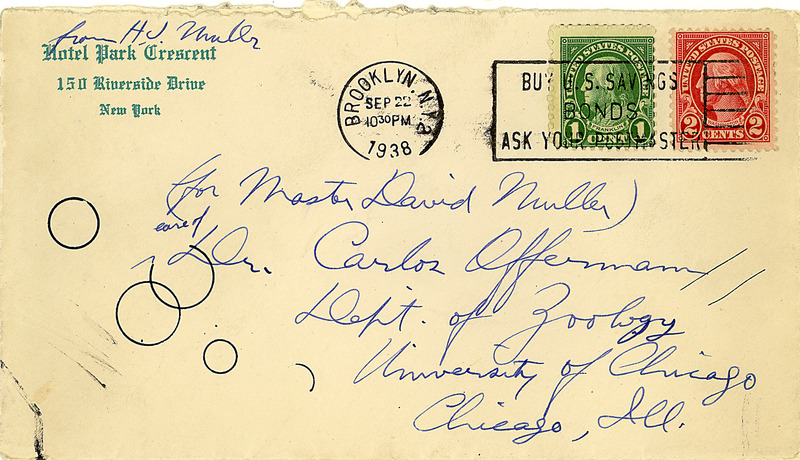 from H J Muller
Hotel Park Crescent
150 Riverside Drive
New York
BROOKLYN, N.Y.
SEP 22
1030PM
1938
BUY U.S. SAVINGS
BONDS
ASK YOUR POSTMASTER
UNITED STATES POSTAGE
FRANKLIN
1 CENT 1
UNITED STATES POSTAGE
2 CENTS 2
(for Master David Muller)
care of
Dr. Carlos Offermann
Dept. of Zoology
University of Chicago
Chicago, Ill.